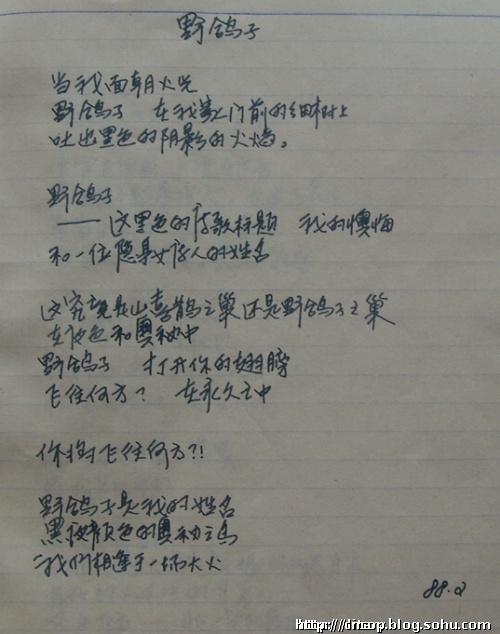 野鸽子
当我面朝火光
野鸽子 在我家门前的细树上
吐出黑色的阴影的火焰。
野鸽子
——这黑色的诗歌标题 我的懊悔
和一位隐身女诗人的姓名
这究竟是山喜鹊之巢还是野鸽子之巢
在夜色和奥秘中
野鸽子 打开你的翅膀
飞往何方? 在永久之中
你将飞往何方?!
野鸽子是我的姓名
黑夜颜色的奥秘之鸟
我们相逢于一场大火
88.2
.blog.sohu.com